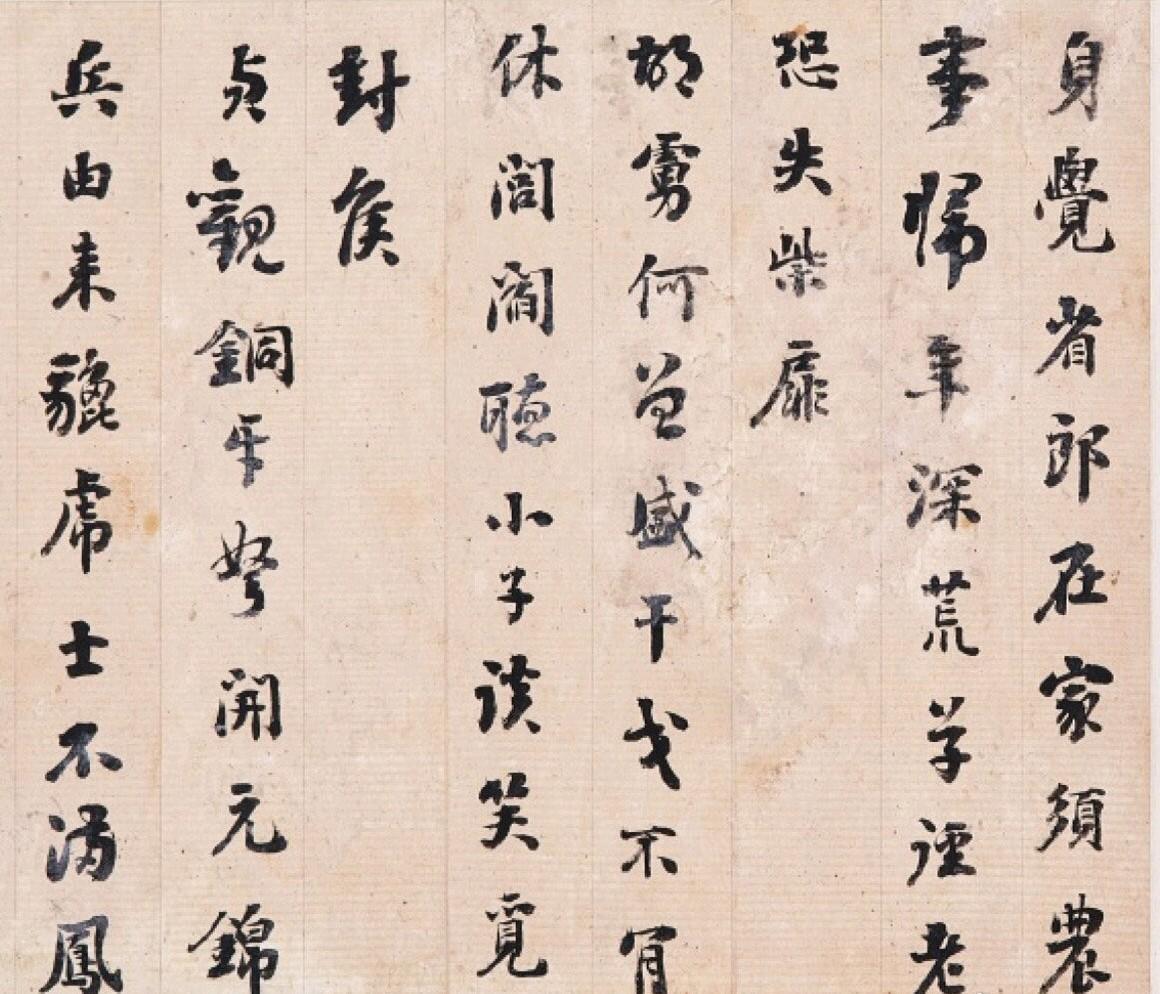 身覺省郎在家須農
事歸年深荒草徑老
恐失柴扉
胡虜何曾盛干戈不肯
休閭閻聽小子談笑覓
封侯
貞觀銅牙弩開元錦
兵由来貔虎士不滿鳳